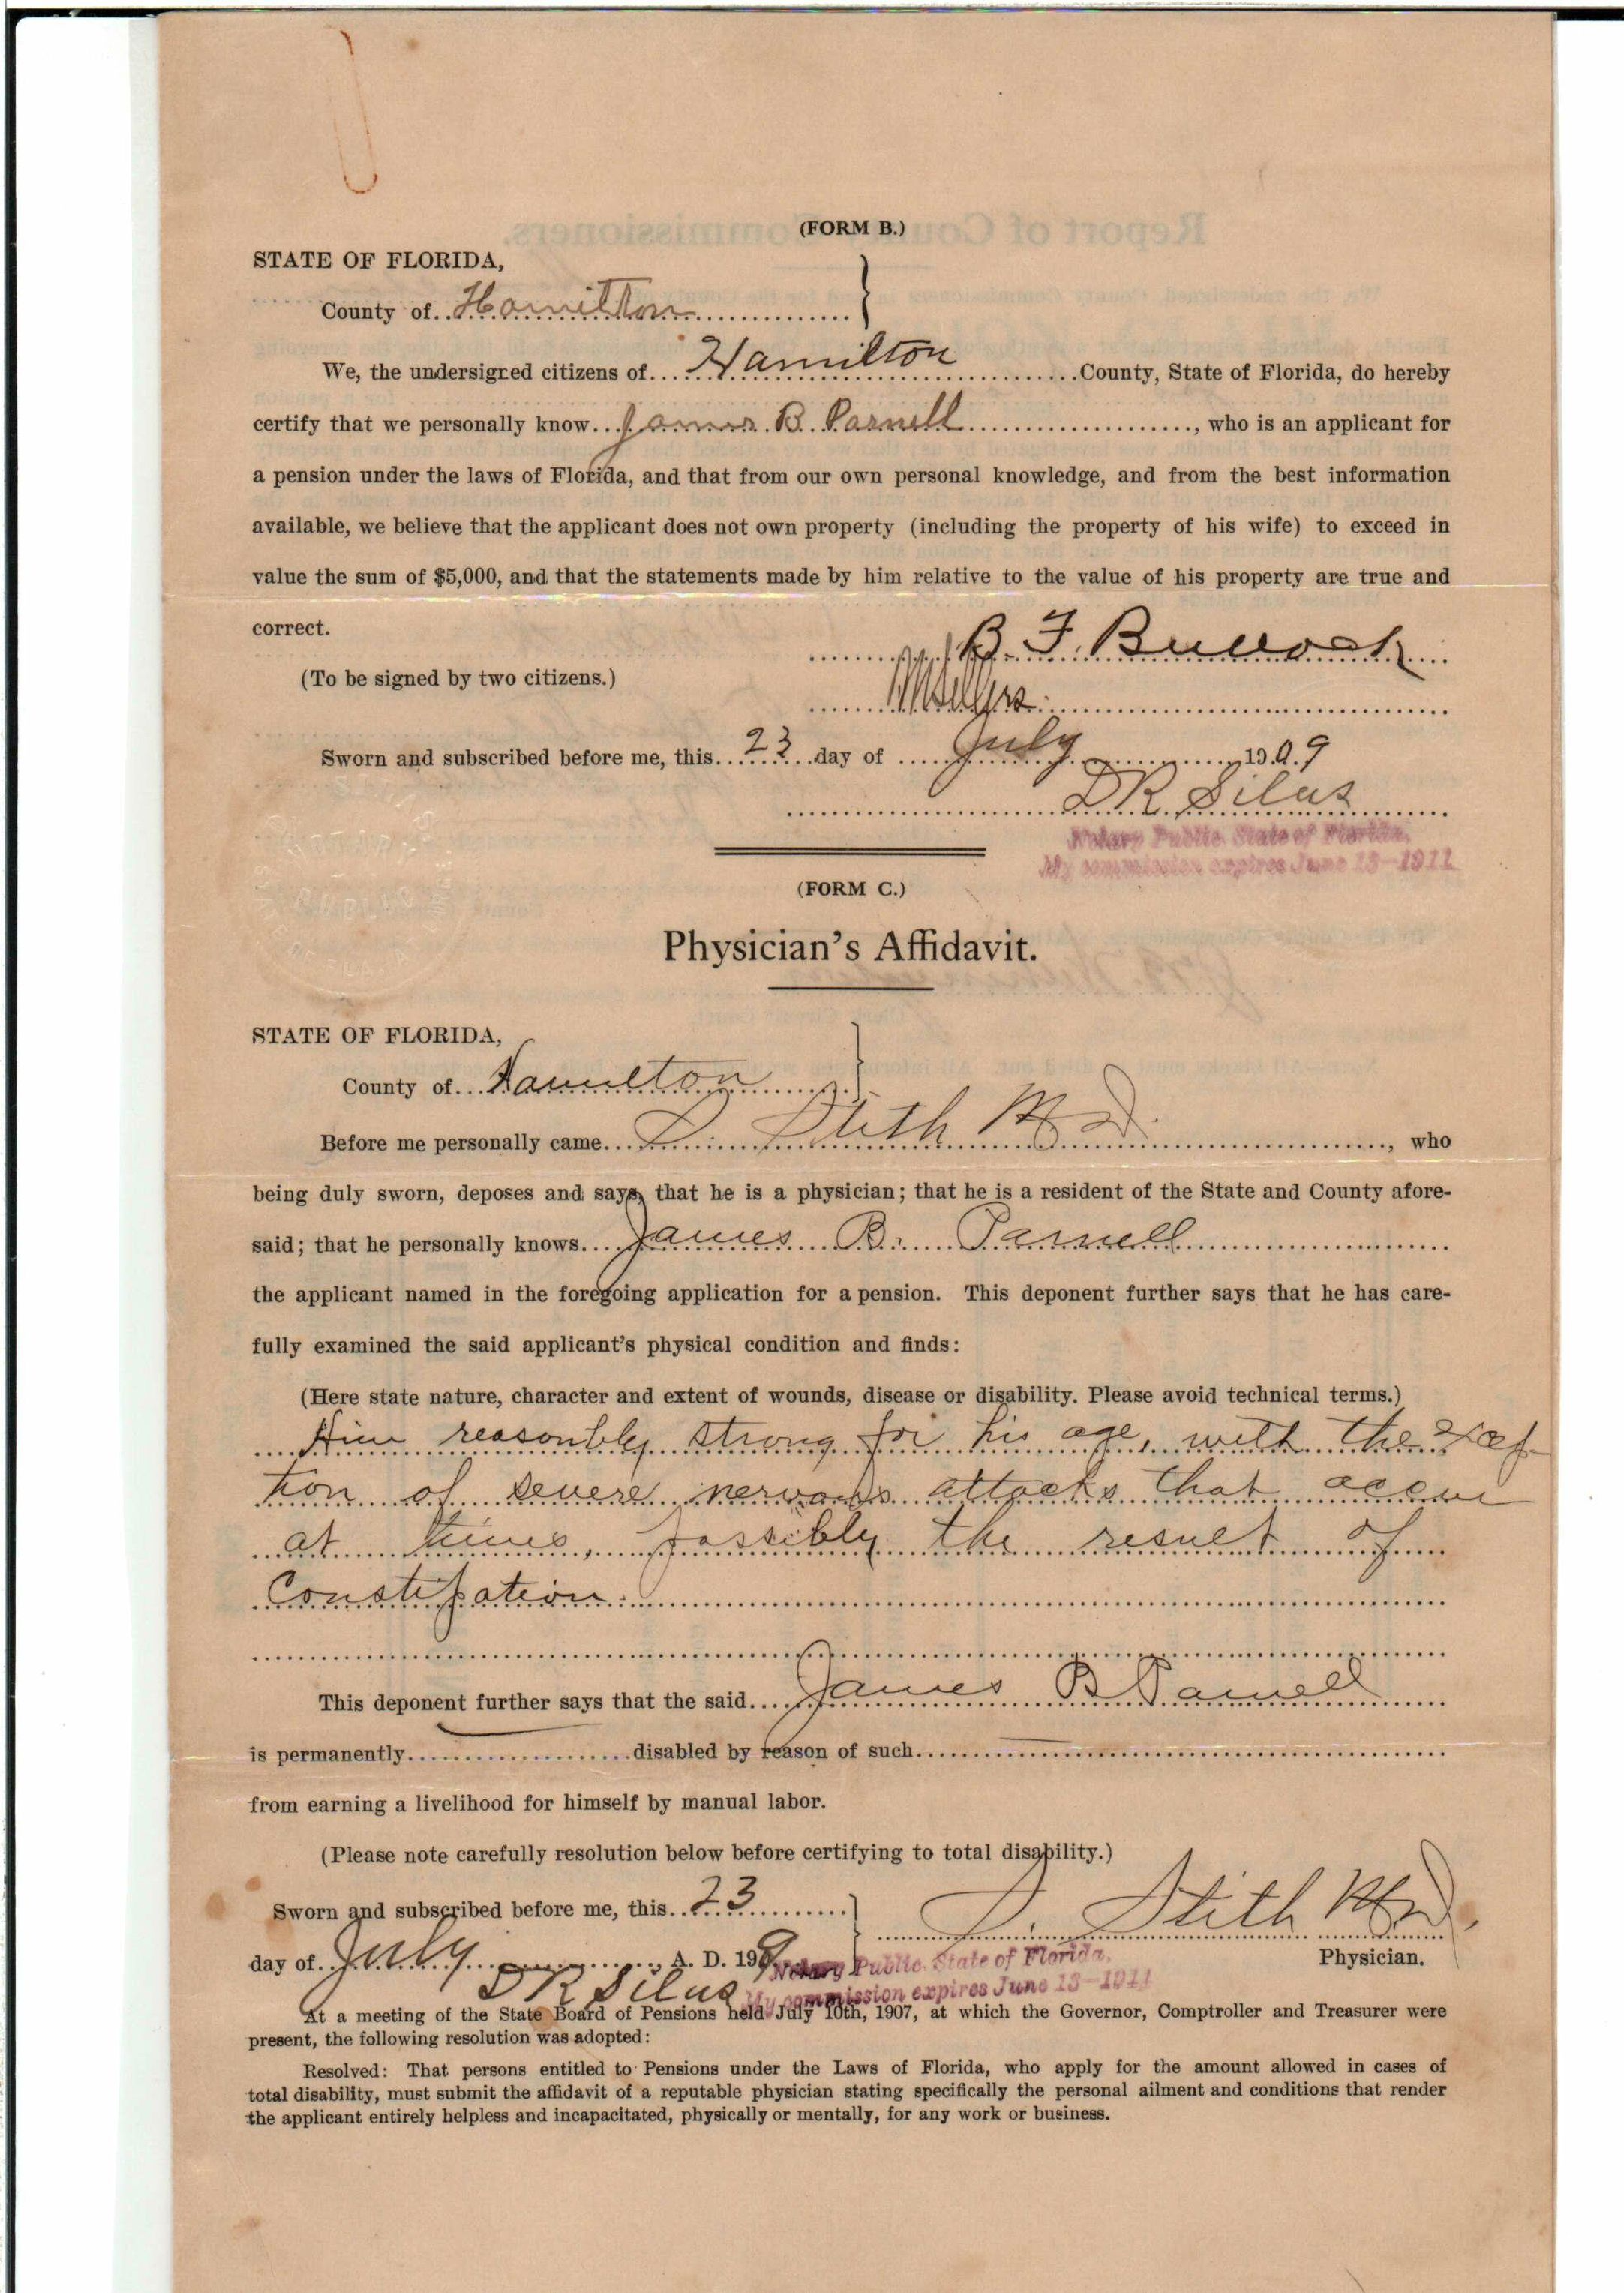 (FORM B.)
STATE OF FLORIDA,
County of Hamilton
We, the undersigned citizens of Hamilton County, State of Florida, do hereby
certify that we personally know James B. Parnell, who is an applicant for
a pension under the laws of Florida, and that from our own personal knowledge, and from the best information
available, we believe that the applicant does not own property (including the property of his wife) to exceed in
value the sum of $5,000, and that the statements made by him relative to the value of his property are true and
correct.
B. F. Bullock
(To be signed by two citizens.)
Sellers
Sworn and subscribed before me, this 23 day of July 1909
D R Silas
Notary Public State of Florida,
My commission expires June 13-1911
(FORM C.)
Physician's Affidavit.
STATE OF FLORIDA,
County of Hamilton
Before me personally came Stith M D., who
being duly sworn, deposes and says, that he is a physician; that he is a resident of the State and County afore-
said; that he personally knows James B. Parnell
the applicant named in the foregoing application for a pension. This deponent further says that he has care-
fully examined the said applicant's physical condition and finds:
(Here state nature, character and extent of wounds, disease or disability. Please avoid technical terms.)
Him reasonbly strong for his age, with the excep-
tion of severe nervous attacks that occur
at times, possibly the result of
Constipation.
This deponent further says that the said James B Parnell
is permanently disabled by reason of such
from earning a livelihood for himself by manual labor.
(Please note carefully resolution below before certifying to total disability.)
Sworn and subscribed before me, this 23
Stith M.D.
day of July, A. D. 1909
Physician.
Notary Public State of Florida,
D R Silas
My commission expires June 13-1911
At a meeting of the State Board of Pensions held July 10th, 1907, at which the Governor, Comptroller and Treasurer were
present, the following resolution was adopted:
Resolved: That persons entitled to Pensions under the Laws of Florida, who apply for the amount allowed in cases of
total disability, must submit the affidavit of a reputable physician stating specifically the personal ailment and conditions that render
the applicant entirely helpless and incapacitated, physically or mentally, for any work or business.